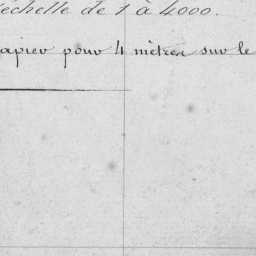 échelle de 1 à 4000.
apier pour 4 mètres sur le